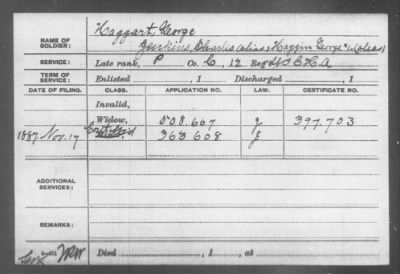 NAME OF SOLDIER: Haggart, George
Jenkins, Charles (alias) Haggin George H. (alias)
SERVICE: Late rank, P Co. C, 12 Reg't U S C H A
TERM OF SERVICE: Enlisted , 1 Discharged , 1
DATE OF FILING. CLASS. APPLICATION NO. LAW. CERTIFICATE NO.
Invalid,
Widow, 508.607 J 397.703
1887. Nov. 17 363608 J
ADDITIONAL SERVICES:
REMARKS:
Died , 1 , at